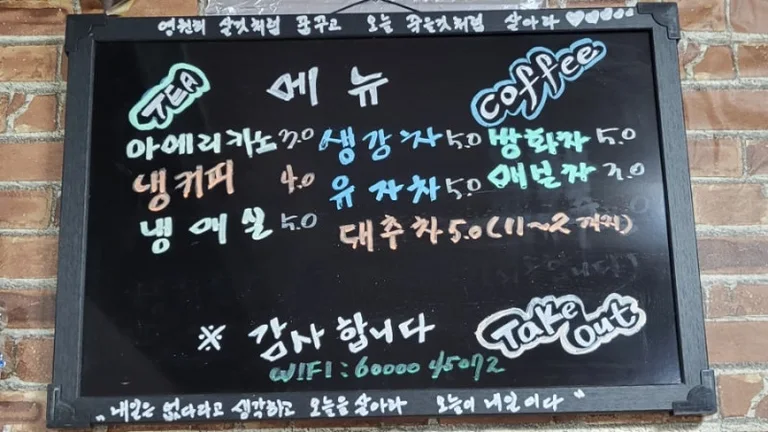 영원히 살것처럼 꿈꾸고 오늘 죽을것처럼 살아라
TEA 메뉴 Coffee
아메리카노 3.0 생강차 5.0 방화차 5.0
냉커피 4.0 유자차 5.0 매실차 3.0
냉매실 5.0 대추차 5.0 (11~2까지)
※ 감사합니다 Take Out
WIFI: 6000045072
"내일은 없다라고 생각하고 오늘을 살아라 오늘이 내일이다"